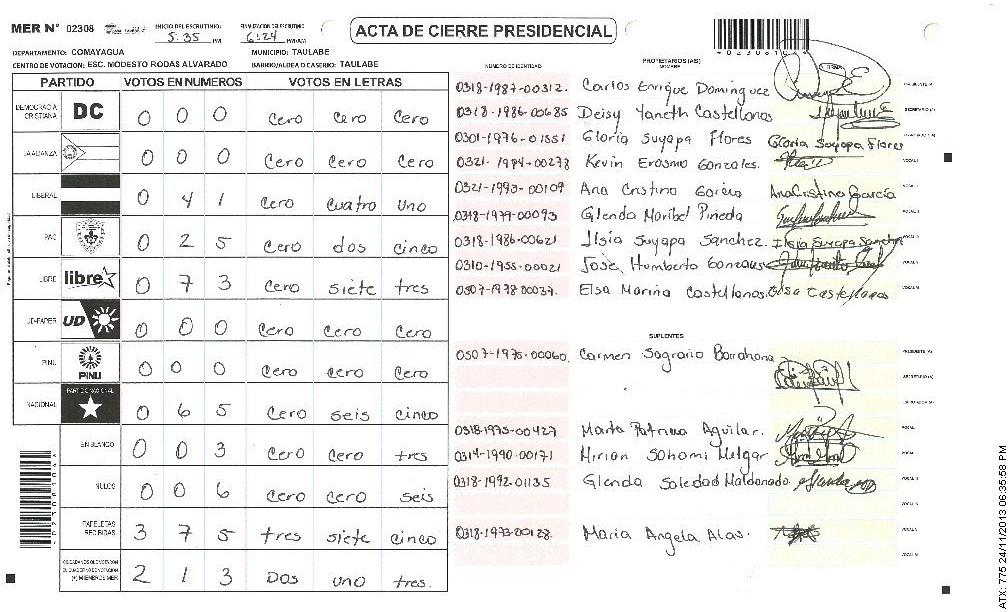 MER Nº 02308
INICIO DEL ESCRUTINIO: 5:35 PM
FINALIZACION DEL ESCRUTINIO 6:24 PM/AM
ACTA DE CIERRE PRESIDENCIAL
DEPARTAMENTO: COMAYAGUA
MUNICIPIO: TAULABE
CENTRO DE VOTACION: ESC. MODESTO RODAS ALVARADO
BARRIO/ALDEA O CASERIO: TAULABE
PARTIDO VOTOS EN NUMEROS VOTOS EN LETRAS
DEMOCRACIA CRISTIANA DC 0 0 0 cero cero cero
LA ALIANZA 0 0 0 cero cero cero
LIBERAL 0 4 1 cero cuatro uno
PAC 0 2 5 cero dos cinco
LIBRE libre 0 7 3 cero siete tres
UD-FAPER UD 0 0 0 cero cero cero
PINU PINU 0 0 0 cero cero cero
NACIONAL PARTIDO NACIONAL 0 6 5 cero seis cinco
EN BLANCO 0 0 3 cero cero tres
NULOS 0 0 6 cero cero seis
PAPELETAS RECIBIDAS 3 7 5 tres siete cinco
CIUDADANOS QUE VOTARON EN CUADERNO DE VOTACION (+) MIEMBROS MER 2 1 3 Dos uno tres.
NUMERO DE IDENTIDAD
PROPIETARIOS (AS)
NOMBRE
FIRMA
0318-1987-00312. Carlos Enrique Dominguez
0318-1986-00685 Deisy Yaneth Castellanos
0301-1976-01551 Gloria Suyapa Flores Gloria Suyapa Flores
0321-1984-00278 Kevin Erasmo Gonzales.
0321-1993-00109 Ana Cristina Garcia Ana Cristina García
0318-1977-00093 Glenda Maribel Pineda
0318-1986-00621 Ilsia Suyapa Sanchez. Ilsia Suyapa Sanchez
0310-1955-00021 Josè Humberto Gonzales
0507-1978-00037. Elsa Marina Castellanos. Elsa Castellanos
SUPLENTES
0507-1975-00060. Carmen Sagrario Barahona
0318-1975-00427 Marta Patricia Aguilar.
0314-1990-00171 Mirian Sohami Melgar
0318-1992-01135 Glenda Soledad Maldonado
0318-1973-00128 Maria Angela Alas.
ATX: 775 24/11/2013 06:35:58 PM